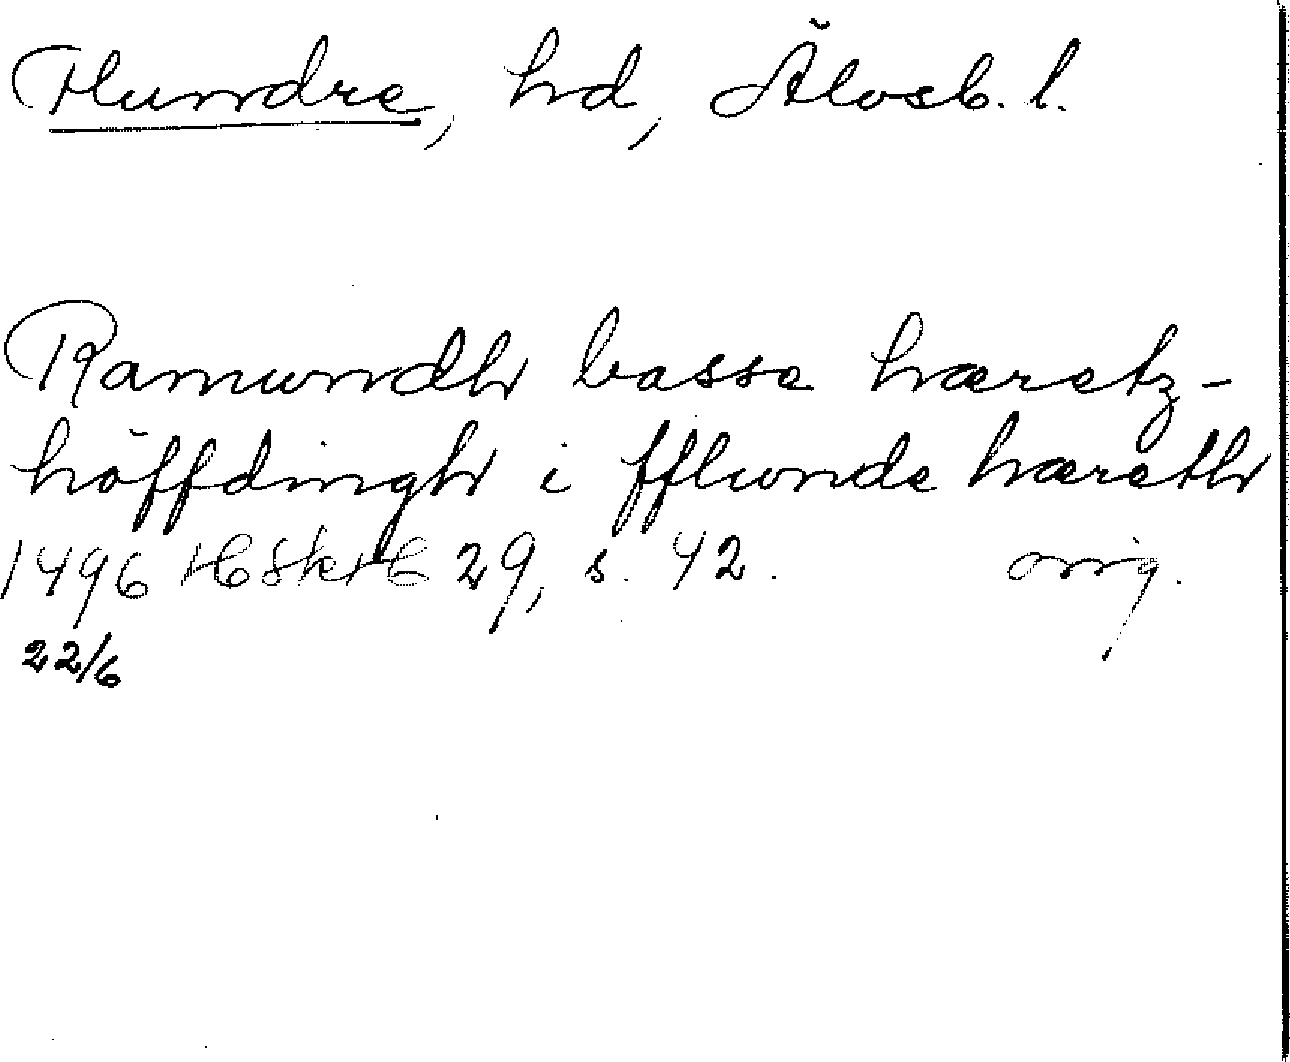 Flundre, hd, Älvsb. l.
Ramundh basse hæretz-
höffdingh i fflunde hæreth
1496 HSkH 29, s. 42. orig.
22/6